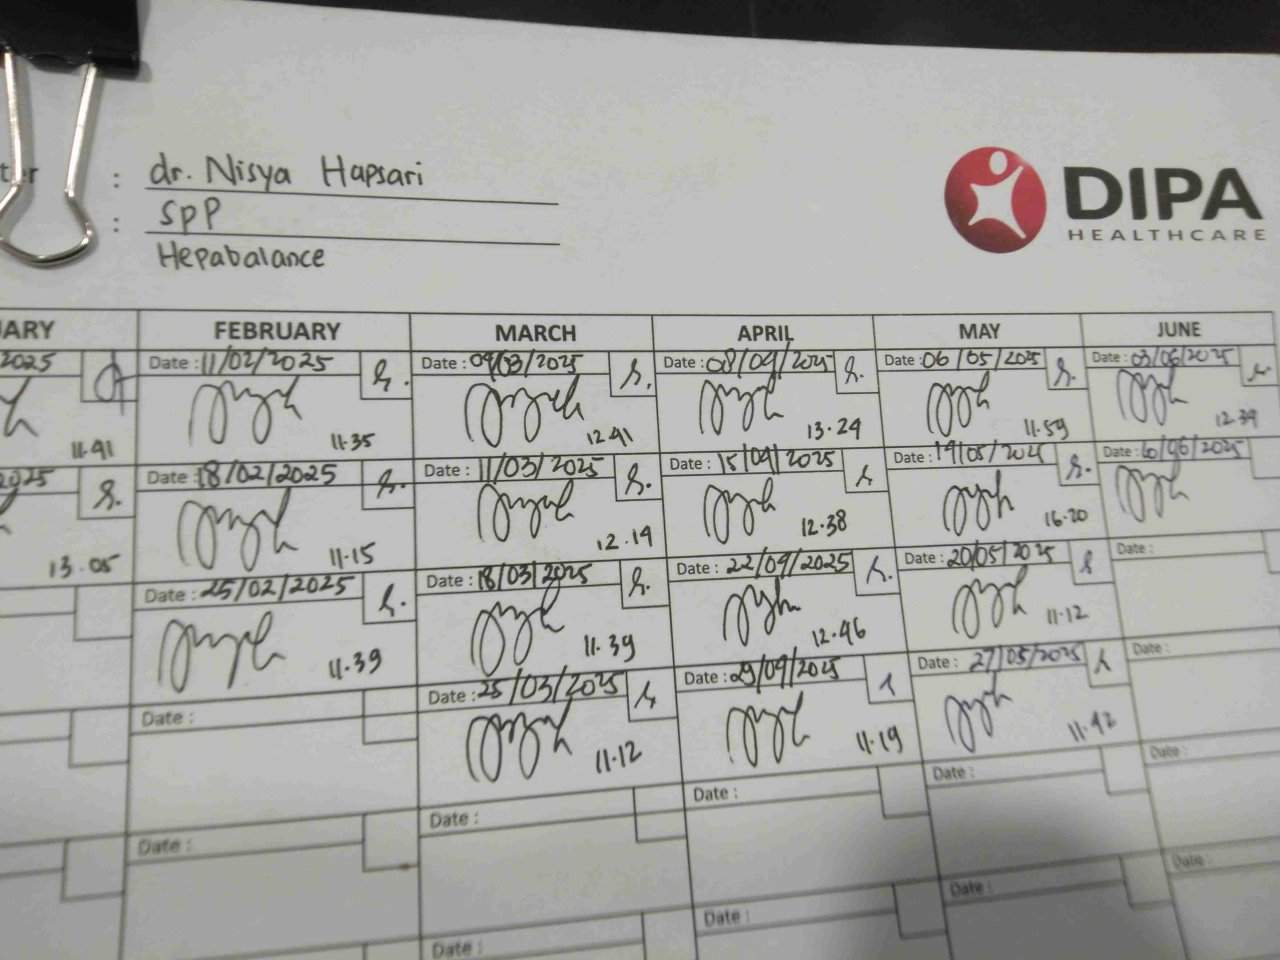 : dr. Nisya Hapsari
: SpP
Hepabalance
DIPA
HEALTHCARE
FEBRUARY MARCH APRIL MAY JUNE
2025 Date : 11/02/2025 Date : 04/03/2025 Date : 08/04/2025 Date : 06/05/2025 Date : 03/06/2025
11.41 11.35 12.41 13.24 11.59 12.39
2025 Date : 18/02/2025 Date : 11/03/2025 Date : 15/04/2025 Date : 14/05/2025 Date : 10/06/2025
13.05 11.15 12.14 12.38 16.20
Date : 25/02/2025 Date : 18/03/2025 Date : 22/04/2025 Date : 20/05/2025 Date :
11.39 11.39 12.46 11.12
Date : Date : 25/03/2025 Date : 29/04/2025 Date : 27/05/2025 Date :
11.12 11.19 11.42
Date : Date : Date : Date : Date :
Date : Date : Date : Date :